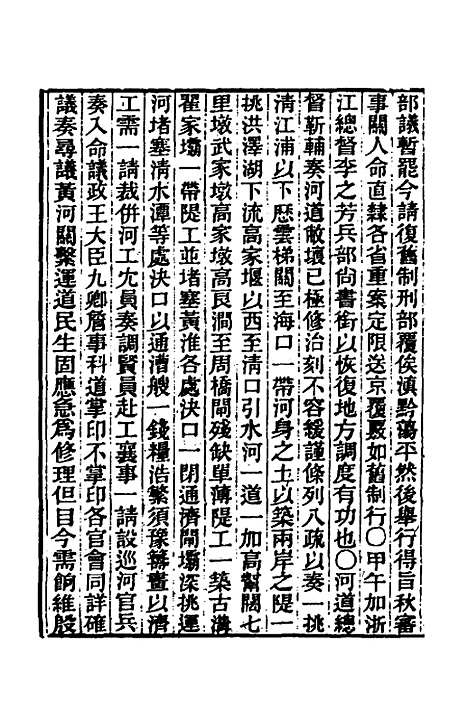 部議暫罷今請復舊制刑部覆俟滇黔蕩平然後舉行得旨秋審
事關人命直隸各省重案定限送京覆覈如舊制行〇甲午加浙
江總督李之芳兵部尚書銜以恢復地方調度有功也〇河道總
督靳輔奏河道敝壞已極修治刻不容緩謹條列八疏以奏一挑
清江浦以下歷雲梯關至海口一帶河身之土以築兩岸之隄一
挑洪澤湖下流高家堰以西至清口引水河一道一加高幫闊七
里墩武家墩高家墩高良澗至周橋閘殘缺單薄隄工一築古溝
翟家壩一帶隄工並堵塞黃淮各處決口一閉通濟閘壩深挑運
河堵塞清水潭等處決口以通漕艘一錢糧浩繁須豫籌畫以濟
工需一請裁併河工冗員奏調賢員赴工襄事一請設巡河官兵
奏入命議政王大臣九卿詹事科道掌印不掌印各官會同詳確
議奏尋議黃河關繫運道民生固應急爲修理但目今需餉維殷